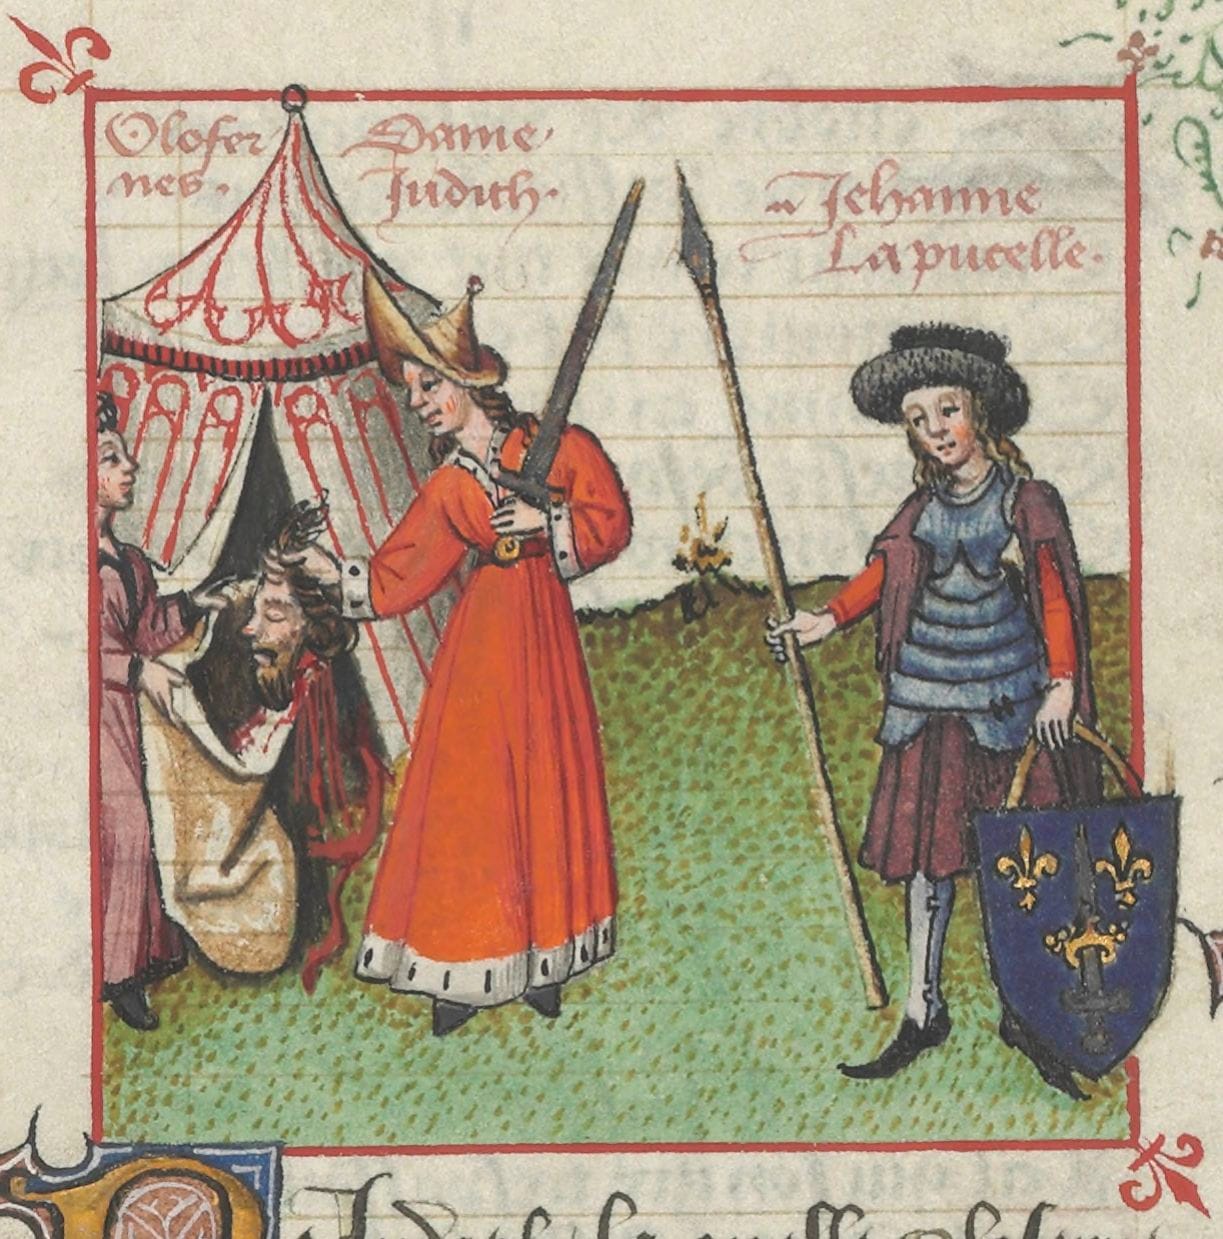 Olofer
nes.
Dame
Judith.
Jehanne
La pucelle.